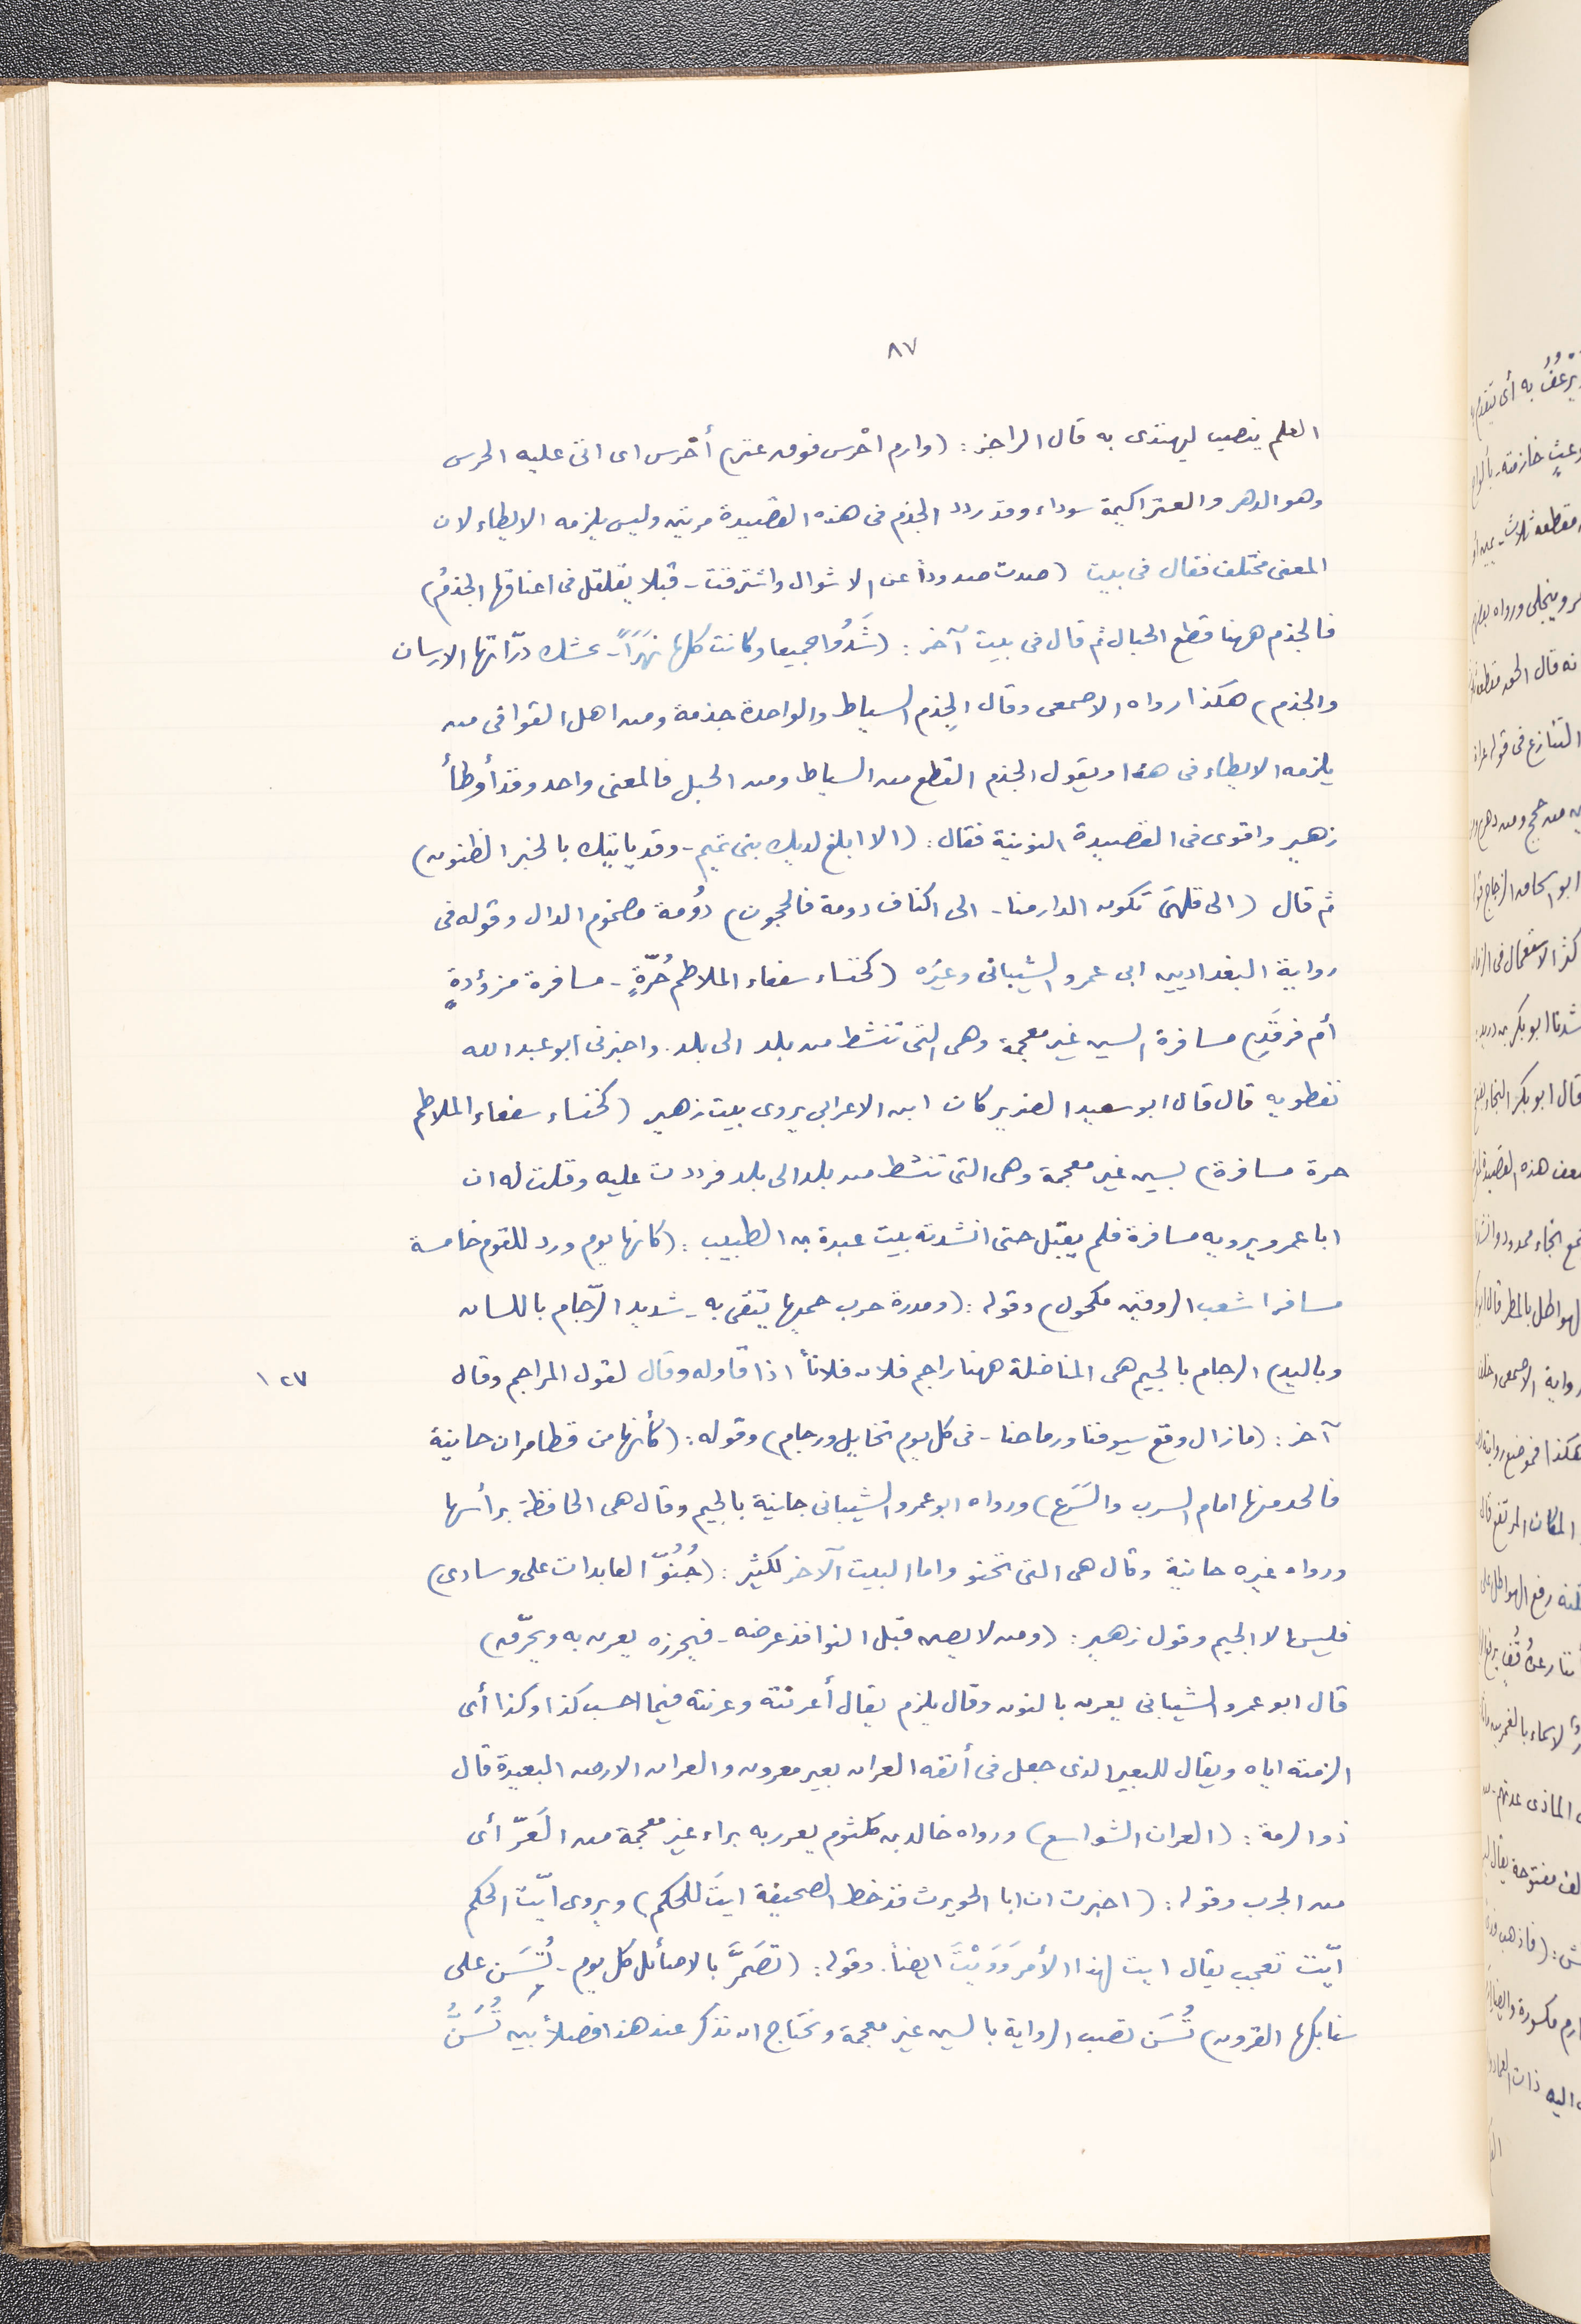 ٨٧
العلم ينصب ليهتدى به قال الراجز : (وارم احْرس فوق عنز) أحْرس اى اتى عليه الحرس
وهو الدهر والعنز اكيمة سوداء وقد ردد الجذم فى هذه القصيدة مرتين وليس يلزمه الايطاء لان
المعنى مختلف فقال فى بيت (صدت صدوداً عن الاشوال واشترفت - قبلا يقلقل فى اعناقها الجذمُ)
فالجذم ههنا قطع الحبال ثم قال فى بيت آخر : (شَدُوا جميعا وكانت كلها نهَزَاً - تحشك درّاتها الارسان
والجذم) هكذا رواه الاصمعى وقال الجِذم السياط والواحدة جذمة ومن اهل القوافى من
يلزمه الايطاء فى هذا ويقول الجذم القطع من السياط ومن الحبل فالمعنى واحد وقد أوطأ
زهير واقوى فى القصيدة النونية فقال : (الا ابلغ لديك بنى تميم - وقد ياتيك بالخبر الظنون)
ثم قال (الى قلهىَ تكون الدار منا - الى اكناف دومة فالحجون) دوُمة مضموم الدال وقوله فى
رواية البغداديين ابى عمرو الشيبانى وغيرُه (كخنساء سفعاء الملاطم حُرّةٍ - مسافرة مزؤدةٍ
أم فرقَدِ) مسافرة السين غير معجمة وهى التى تنشط من بلد الى بلد . واخبرنى ابو عبد الله
نفطويه قال قال ابو سعيد الضرير كان ابن الاعرابى يروى بيت زهير (كخنساء سفعاء الملاطم
حرة مسافرة) بسين غير معجمة وهى التى تنشط من بلد الى بلد فرددت عليه وقلت له ان
ابا عمرو يرويه مسافرة فلم يقبل حتى انشدته بيت عبدة بن الطبيب : (كانها يوم ورد للقوم خامسة
مسافر اشعب الروقين مكحول) وقوله : (ومدرة حرب حميها يتقى به - شديد الرّجام باللسان
وباليد) الرجام بالجيم هى المناضلة ههنا راجم فلان فلاناً اذا قاوله وقال لقول المراجم وقال ١٢٧
آخر : (مازال وقع سيوفنا ورماحنا - فى كل يوم تخايل ورجام) وقوله : (كأنها من قطا مران حانية
فالحد منها امام السرب والسَرَع) ورواه ابو عمرو الشيبانى جانية بالجيم وقال هى الحافظة برأسها
ورواه غيره حانية وقال هى التى تحنو واما البيت الآخر لكثير : (جُنُوّ العابدات على وسادى)
فليس الا الجيم وقول زهير : (ومن لا يصن قبل النوافذ عرضه - فيحرزه يعرن به ويحرّق)
قال ابو عمرو الشيبانى يعرن بالنون وقال يلزم يقال أعرنته وعرنته فيما احسب كذا وكذا أى
الزمته اياه ويقال للبعير الذى جعل فى أنفه العران بعير معرون والعران الارض البعيدة قال
ذو الرمة : (العران الشواسع) ورواه خالد بن كلثوم يعرر به براء غير معجمة من العَرّ أى
من الجرب وقوله : (اخبرت ان ابا الحويرث قد خط الصحيفة ايتَ للحكم) ويروى ايّت الحكم
ايّت تعجب يقال ايت لهذا الأمر وَوَيْتَ ايضاً . وقوله : (تضَمَّرَ بالاصائل كل يوم - تُسَن على
سنابكها القرون) تُسَن نصب الرواية بالسين غير معجمة ونحتاج ان نذكر عند هذا فصلاً بين تُسَنُّ